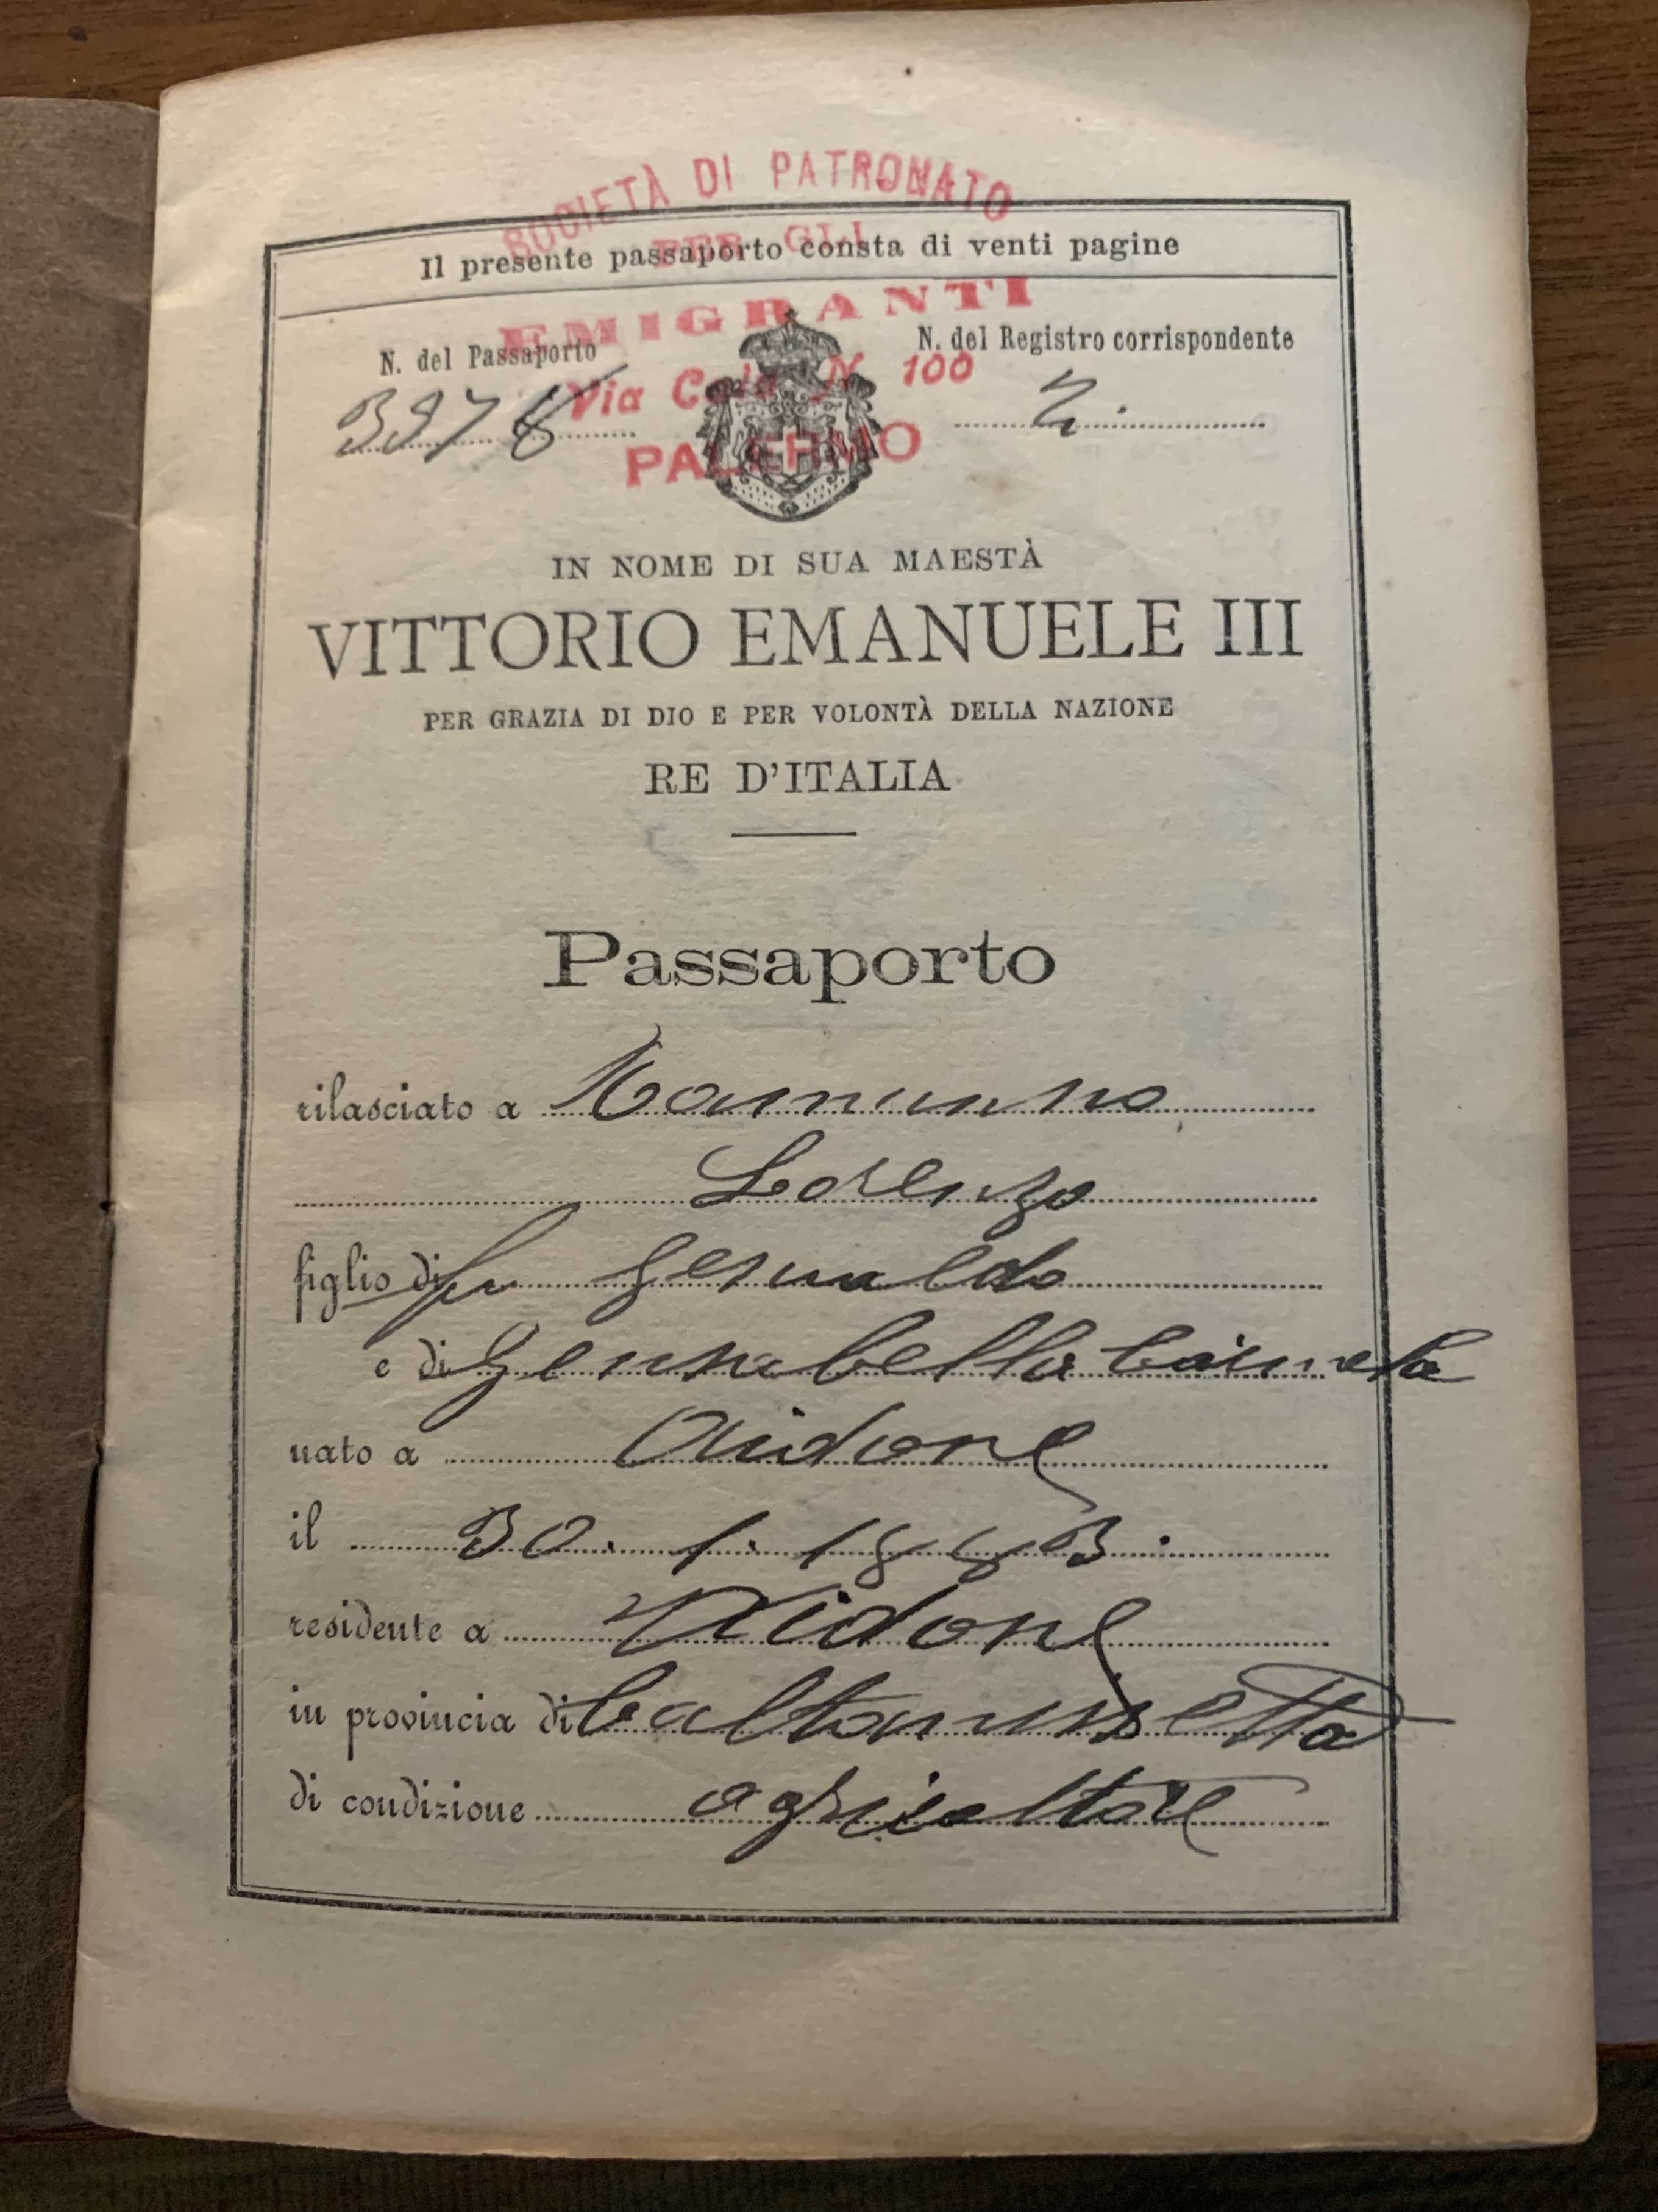 SOCIETÀ DI PATRONATO
PER GLI
EMIGRANTI
Via Cala N. 100
PALERMO
Il presente passaporto consta di venti pagine
N. del Passaporto
N. del Registro corrispondente
3976
2.
IN NOME DI SUA MAESTÀ
VITTORIO EMANUELE III
PER GRAZIA DI DIO E PER VOLONTÀ DELLA NAZIONE
RE D'ITALIA
Passaporto
rilasciato a
Lorenzo
figlio di fu Gesualdo
e di Gennabella Carmela
nato a Aidone
il 30. 1. 1883.
residente a Aidone
in provincia di Caltanissetta
di condizione agricoltore